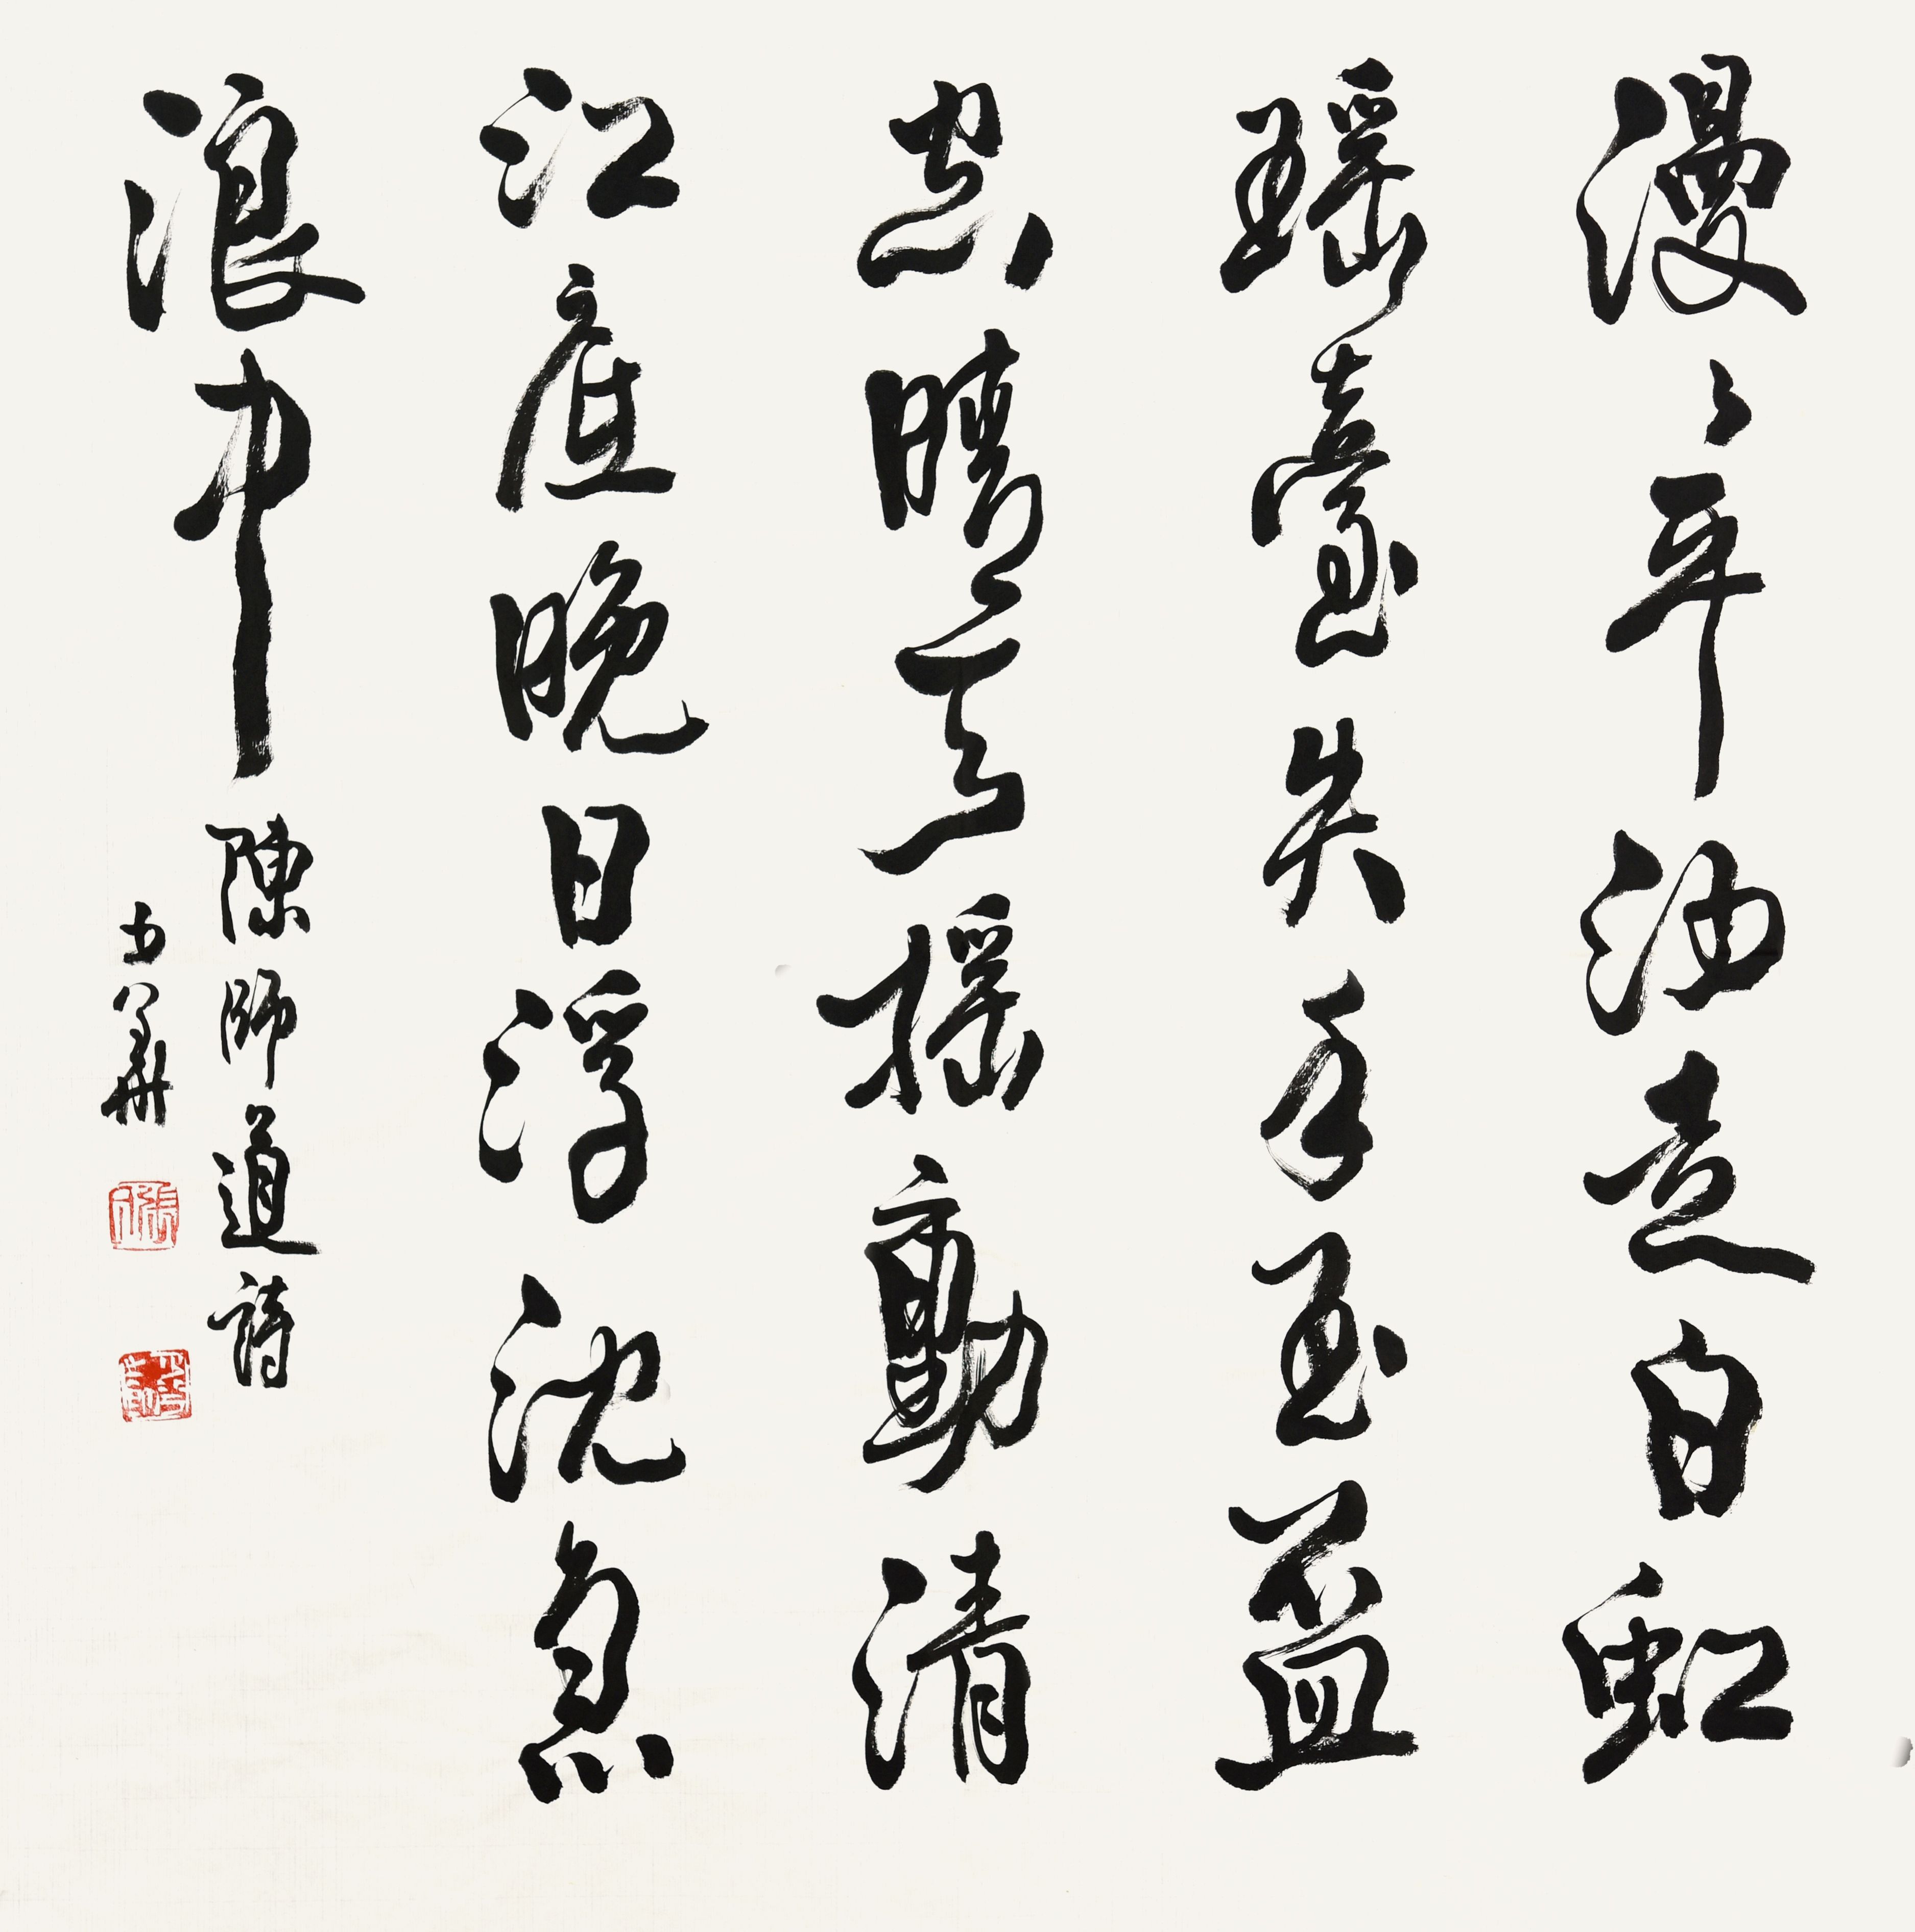 漫〻平沙走白虹
瑤臺失手玉盃
空晴天搖動清
江底晚日浮沈急
浪中 陳師道詩